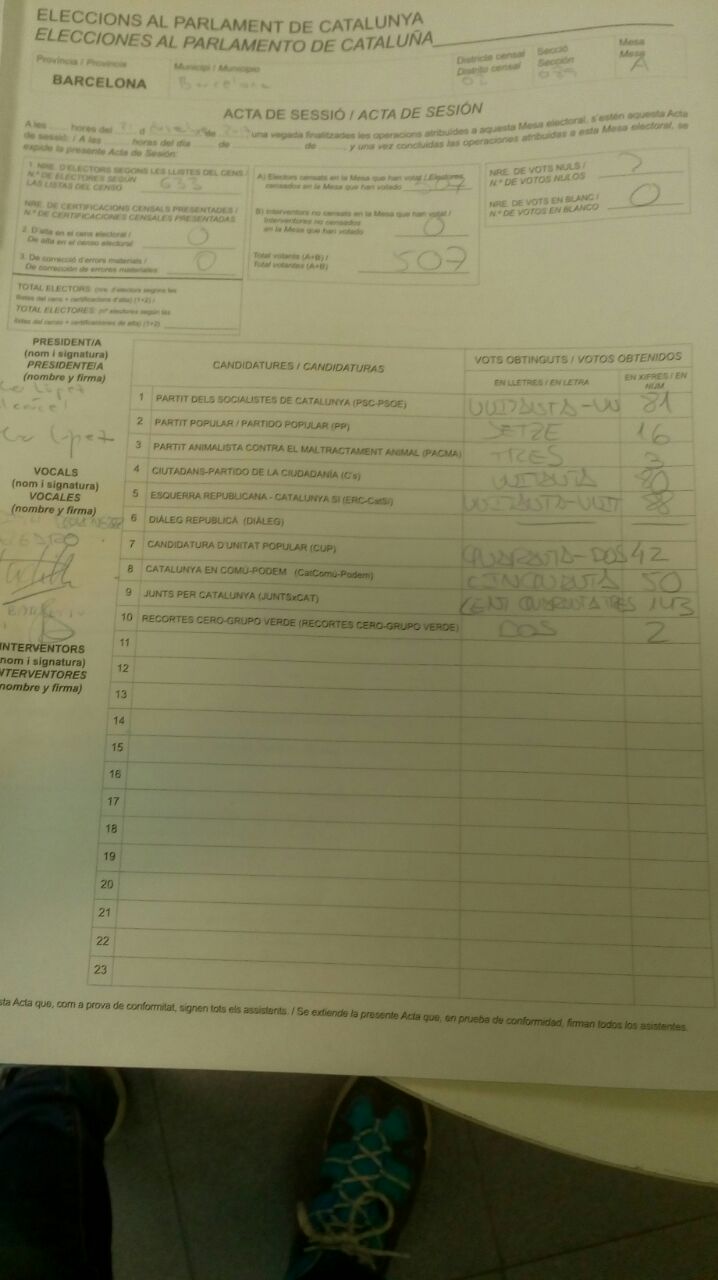 ELECCIONS AL PARLAMENT DE CATALUNYA
ELECCIONES AL PARLAMENTO DE CATALUÑA
Província / Provincia
BARCELONA
Municipi / Municipio
Barcelona
Districte censal
Distrito censal
02
Secció
Sección
089
Mesa
Mesa
A
ACTA DE SESSIÓ / ACTA DE SESIÓN
A les hores del d de una vegada finalitzades les operacions atribuïdes a aquesta Mesa electoral, s'estén aquesta Acta
de sessió: / A las horas del día de de y una vez concluidas las operaciones atribuidas a esta Mesa electoral, se
expide la presente Acta de Sesión:
1. NRE. D'ELECTORS SEGONS LES LLISTES DEL CENS /
N.º DE ELECTORES SEGÚN
LAS LISTAS DEL CENSO 633
NRE. DE CERTIFICACIONS CENSALS PRESENTADES /
N.º DE CERTIFICACIONES CENSALES PRESENTADAS
2. D'alta en el cens electoral /
De alta en el censo electoral 0
3. De correcció d'errors materials /
De corrección de errores materiales 0
TOTAL ELECTORS: (nre. d'electors segons les
llistes del cens + certificacions d'alta) (1+2) /
TOTAL ELECTORES: (nº electores según las
listas del censo + certificaciones de alta) (1+2)
A) Electors censats en la Mesa que han votat / Electores
censados en la Mesa que han votado 507
B) Interventors no censats en la Mesa que han votat /
Interventores no censados
en la Mesa que han votado 0
Total votants (A+B) /
Total votantes (A+B) 507
NRE. DE VOTS NULS /
N.º DE VOTOS NULOS
NRE. DE VOTS EN BLANC /
N.º DE VOTOS EN BLANCO 0
PRESIDENT/A
(nom i signatura)
PRESIDENTE/A
(nombre y firma)
López
López
VOCALS
(nom i signatura)
VOCALES
(nombre y firma)
INTERVENTORS
(nom i signatura)
INTERVENTORES
(nombre y firma)
CANDIDATURES / CANDIDATURAS
VOTS OBTINGUTS / VOTOS OBTENIDOS
EN LLETRES / EN LETRA
EN XIFRES / EN NÚM
1 PARTIT DELS SOCIALISTES DE CATALUNYA (PSC-PSOE) VUITANTA-UN 81
2 PARTIT POPULAR / PARTIDO POPULAR (PP) SETZE 16
3 PARTIT ANIMALISTA CONTRA EL MALTRACTAMENT ANIMAL (PACMA) TRES 3
4 CIUTADANS-PARTIDO DE LA CIUDADANÍA (C's) VUITANTA 80
5 ESQUERRA REPUBLICANA - CATALUNYA SÍ (ERC-CatSí) VUITANTA-VUIT 88
6 DIÀLEG REPUBLICÀ (DIÀLEG)
7 CANDIDATURA D'UNITAT POPULAR (CUP) QUARANTA-DOS 42
8 CATALUNYA EN COMÚ-PODEM (CatComú-Podem) CINQUANTA 50
9 JUNTS PER CATALUNYA (JUNTSxCAT) CENT QUARANTA TRES 143
10 RECORTES CERO-GRUPO VERDE (RECORTES CERO-GRUPO VERDE) DOS 2
11
12
13
14
15
16
17
18
19
20
21
22
23
sta Acta que, com a prova de conformitat, signen tots els assistents. / Se extiende la presente Acta que, en prueba de conformidad, firman todos los asistentes.